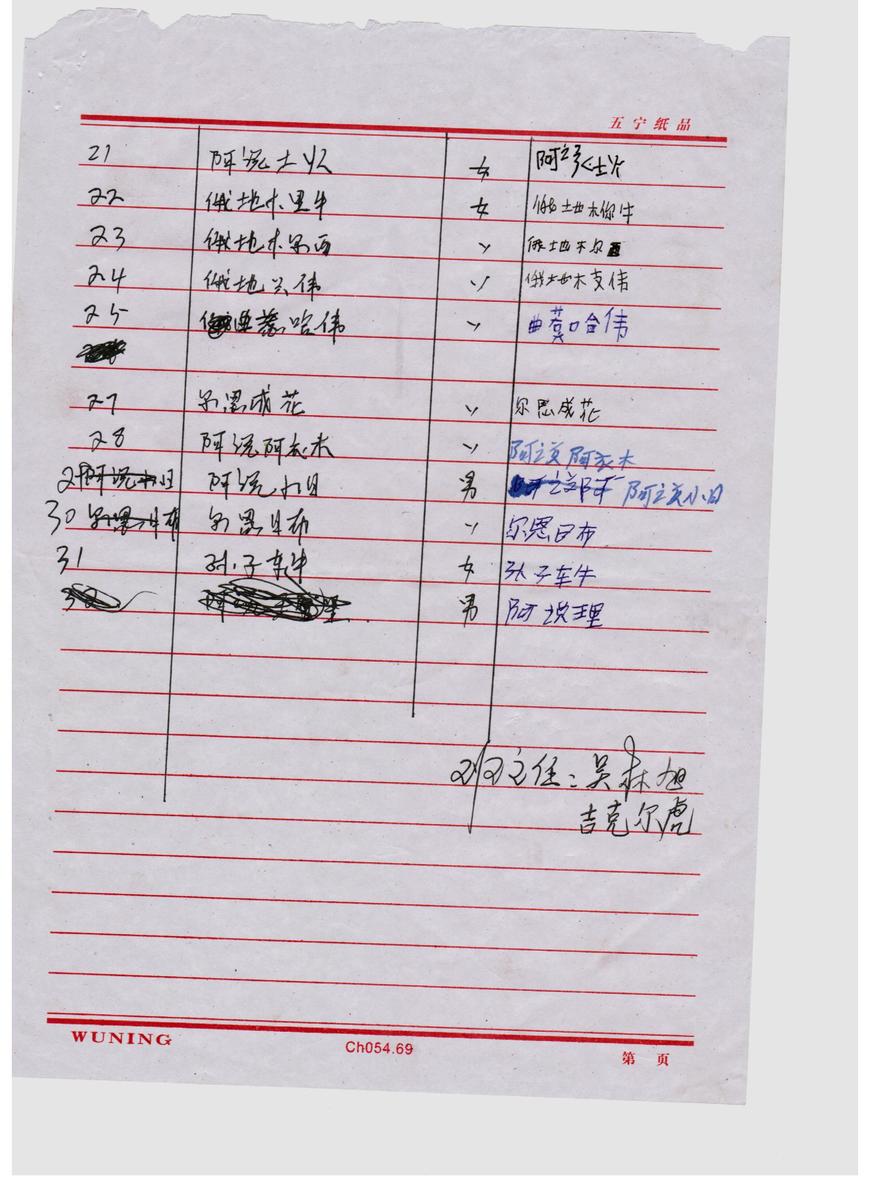 五宁纸品
21 阿说士火 女 阿说士火
22 俄地木里牛 女 俄地木你牛
23 俄地木尔西 〃 俄地木尔西
24 俄地 伟 〃 俄地木支伟
25 曲莫哈伟 〃 曲莫哈伟
27 尔恩成花 〃 尔恩成花
28 阿说阿衣木 〃 阿说阿衣木
29 阿说小日 男 阿说小日
30 尔恩日布 〃 尔恩日布
31 孙子车牛 女 孙子车牛
男 阿说理
班主任：吴林旭
吉克尔虎
WUNING Ch054.69 第 页